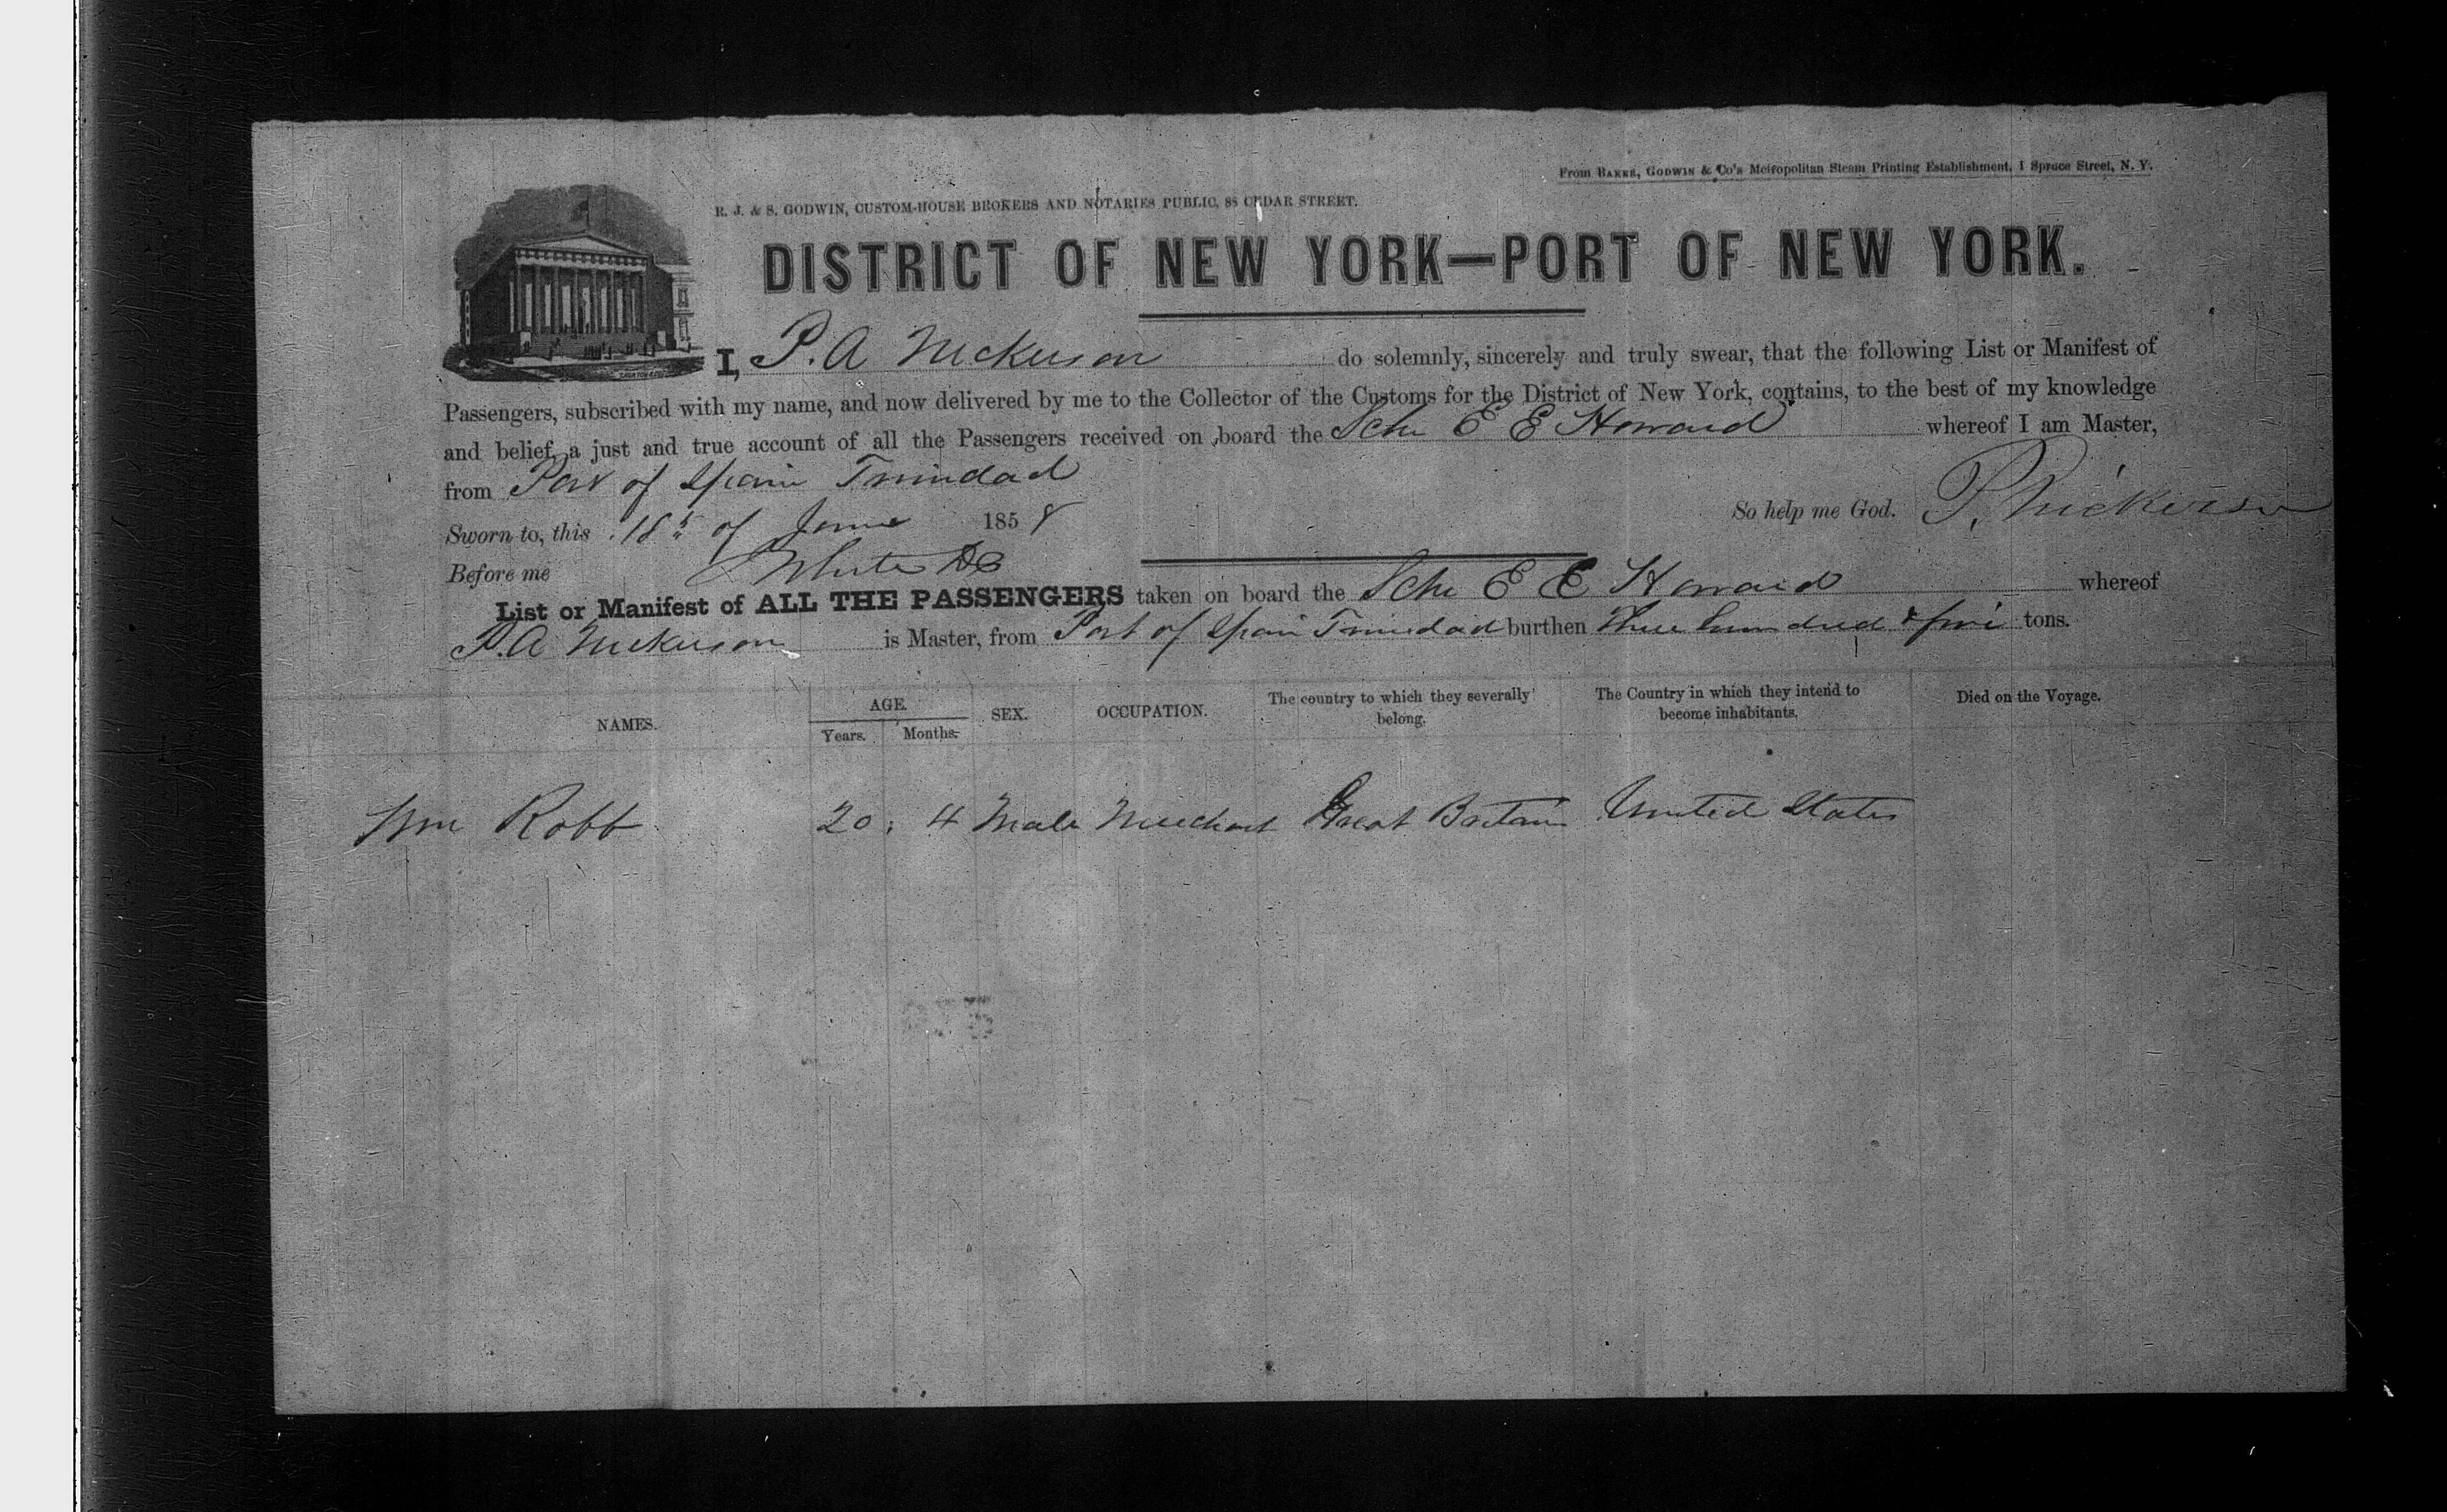 From BAKER, GODWIN & Co's Metropolitan Steam Printing Establishment, 1 Spruce Street, N. Y.
R. J. & S. GODWIN, CUSTOM-HOUSE BROKERS AND NOTARIES PUBLIC, 88 CEDAR STREET.
DISTRICT OF NEW YORK—PORT OF NEW YORK.
I, P. A Nickerson do solemnly, sincerely and truly swear, that the following List or Manifest of
Passengers, subscribed with my name, and now delivered by me to the Collector of the Customs for the District of New York, contains, to the best of my knowledge
and belief, a just and true account of all the Passengers received on board the Schr E E Howard whereof I am Master,
from Port of Spain Trinidad
So help me God. P. Nickerson
Sworn to, this 18th of June 1858
Before me White
List or Manifest of ALL THE PASSENGERS taken on board the Schr E E Howard whereof
P. A Nickerson is Master, from Port of Spain Trinidad burthen Three hundred & five tons.
NAMES. AGE. SEX. OCCUPATION. The country to which they severally belong. The Country in which they intend to become inhabitants. Died on the Voyage.
Years. Months.
Wm Robb 20 4 Male Merchant Great Britain United States